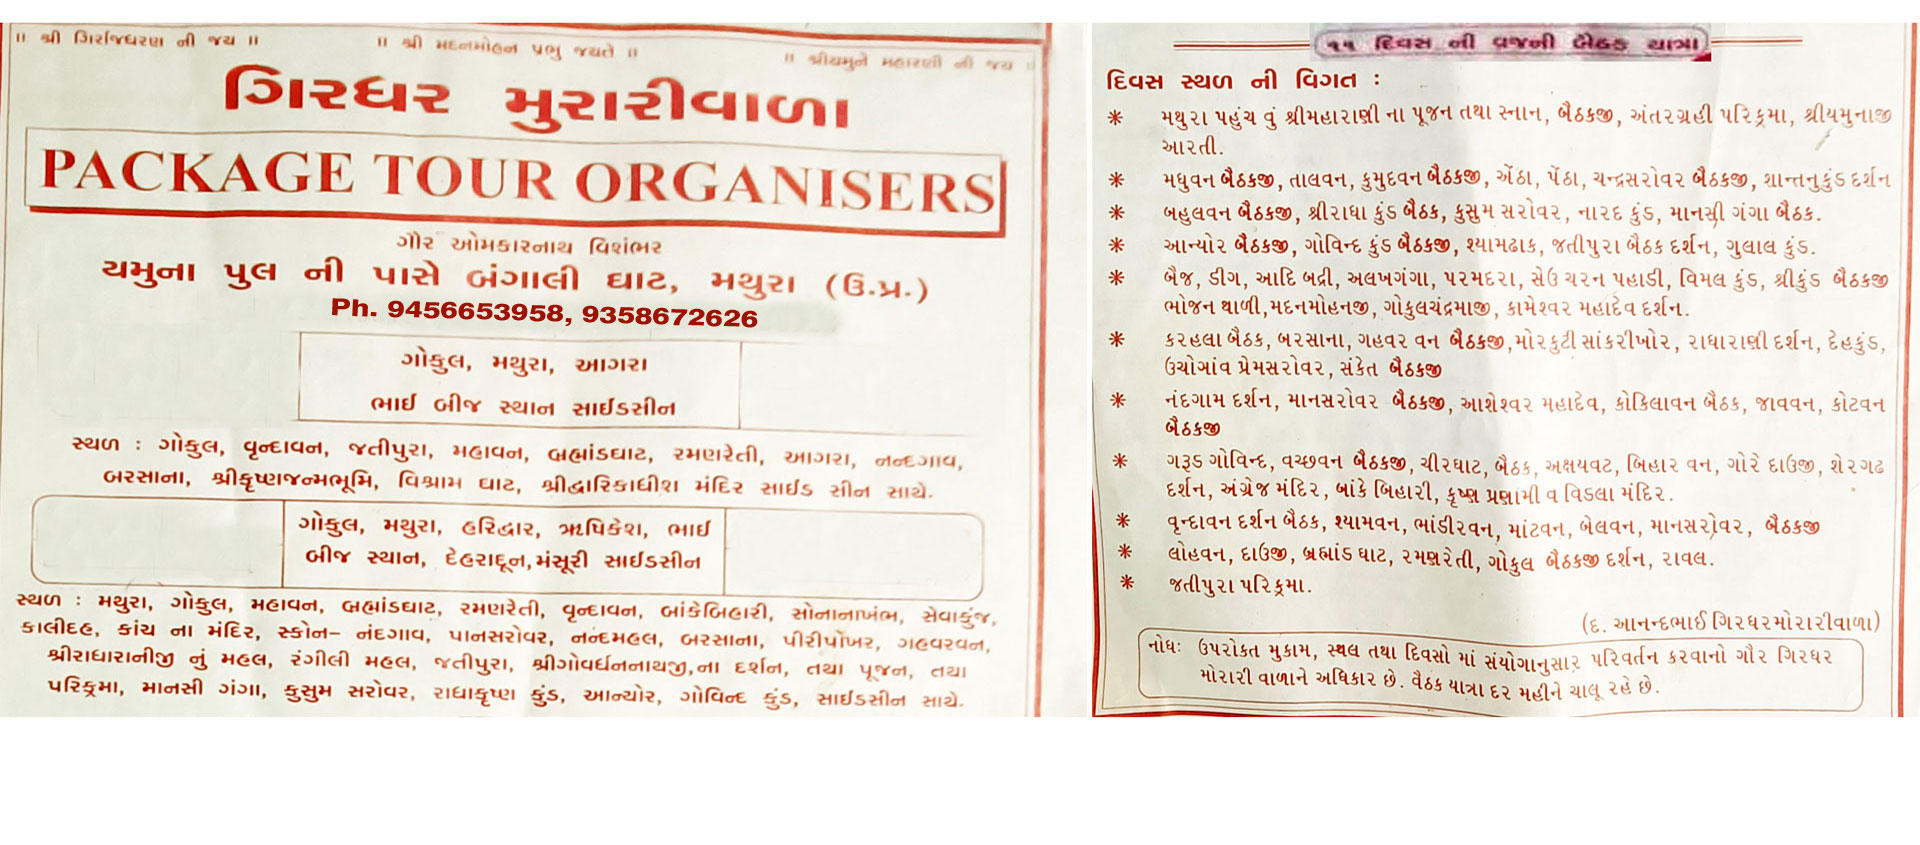 ॥ શ્રી ગિર્રાજધરણ ની જય ॥
॥ શ્રી મદનમોહન પ્રભુ જયતે ॥
॥ શ્રીયમુને મહારાણી ની જય ॥
ગિરધર મુરારીવાળા
PACKAGE TOUR ORGANISERS
ગૌર ઓમકારનાથ વિશંભર
યમુના પુલ ની પાસે બંગાલી ઘાટ, મથુરા (ઉ.પ્ર.)
Ph. 9456653958, 9358672626
ગોકુલ, મથુરા, આગરા
ભાઈ બીજ સ્થાન સાઈડસીન
સ્થળ : ગોકુલ, વૃન્દાવન, જતીપુરા, મહાવન, બ્રહ્માંડઘાટ, રમણરેતી, આગરા, નન્દગાવ,
બરસાના, શ્રીકૃષ્ણજન્મભૂમિ, વિશ્રામ ઘાટ, શ્રીદ્વારિકાધીશ મંદિર સાઈડ સીન સાથે.
ગોકુલ, મથુરા, હરિદ્વાર, ઋષિકેશ, ભાઈ
બીજ સ્થાન, દેહરાદૂન,મંસૂરી સાઈડસીન
સ્થળ : મથુરા, ગોકુલ, મહાવન, બ્રહ્માંડઘાટ, રમણરેતી, વૃન્દાવન, બાંકેબિહારી, સોનાનાખંભ, સેવાકુંજ,
કાલીદહ, કાંચ ના મંદિર, સ્કોન– નંદગાવ, પાનસરોવર, નન્દમહલ, બરસાના, પીરીપોખર, ગહવરવન,
શ્રીરાધારાનીજી નું મહલ, રંગીલી મહલ, જતીપુરા, શ્રીગોવર્ધનનાથજી,ના દર્શન, તથા પૂજન, તથા
પરિક્રમા, માનસી ગંગા, કુસુમ સરોવર, રાધાકૃષ્ણ કુંડ, આન્યોર, ગોવિન્દ કુંડ, સાઈડસીન સાથે.
૧૧ દિવસ ની વ્રજની બેઠક યાત્રા
દિવસ સ્થળ ની વિગત :
* મથુરા પહુંચ વું શ્રીમહારાણી ના પૂજન તથા સ્નાન, બૈઠકજી, અંતરગ્રહી પરિક્રમા, શ્રીયમુનાજી
આરતી.
* મધુવન બૈઠકજી, તાલવન, કુમુદવન બૈઠકજી, એંઠા, પેંઠા, ચન્દ્રસરોવર બૈઠકજી, શાન્તનુકુંડ દર્શન
* બહુલવન બૈઠકજી, શ્રીરાધા કુંડ બૈઠક, કુસુમ સરોવર, નારદ કુંડ, માનસી ગંગા બૈઠક.
* આન્યોર બૈઠકજી, ગોવિન્દ કુંડ બૈઠકજી, શ્યામઢાક, જતીપુરા બૈઠક દર્શન, ગુલાલ કુંડ.
* બૈજ, ડીગ, આદિ બદ્રી, અલખગંગા, પરમદરા, સેઉ ચરન પહાડી, વિમલ કુંડ, શ્રીકુંડ બૈઠકજી
ભોજન થાળી,મદનમોહનજી, ગોકુલચંદ્રમાજી, કામેશ્વર મહાદેવ દર્શન.
* કરહલા બૈઠક, બરસાના, ગહવર વન બૈઠકજી,મોરકુટી સાંકરીખોર, રાધારાણી દર્શન, દેહકુંડ,
ઉચોગાંવ પ્રેમસરોવર, સંકેત બૈઠકજી
* નંદગામ દર્શન, માનસરોવર બૈઠકજી, આશેશ્વર મહાદેવ, કોકિલાવન બૈઠક, જાવવન, કોટવન
બૈઠકજી
* ગરૂડ ગોવિન્દ, વચ્છવન બૈઠકજી, ચીરઘાટ, બૈઠક, અક્ષયવટ, બિહાર વન, ગોરે દાઉજી, શેરગઢ
દર્શન, અંગ્રેજ મંદિર, બાંકે બિહારી, કૃષ્ણ પ્રણામી વ વિડલા મંદિર.
* વૃન્દાવન દર્શન બૈઠક, શ્યામવન, ભાંડીરવન, માંટવન, બેલવન, માનસરોવર, બૈઠકજી
* લોહવન, દાઉજી, બ્રહ્માંડ ઘાટ, રમણરેતી, ગોકુલ બૈઠકજી દર્શન, રાવલ.
* જતીપુરા પરિક્રમા.
(દ. આનન્દભાઈ ગિરધરમોરારીવાળા)
નોધઃ ઉપરોકત મુકામ, સ્થલ તથા દિવસો માં સંયોગાનુસાર પરિવર્તન કરવાનો ગૌર ગિરધર
મોરારી વાળાને અધિકાર છે. વૈઠક યાત્રા દર મહીને ચાલૂ રહે છે.